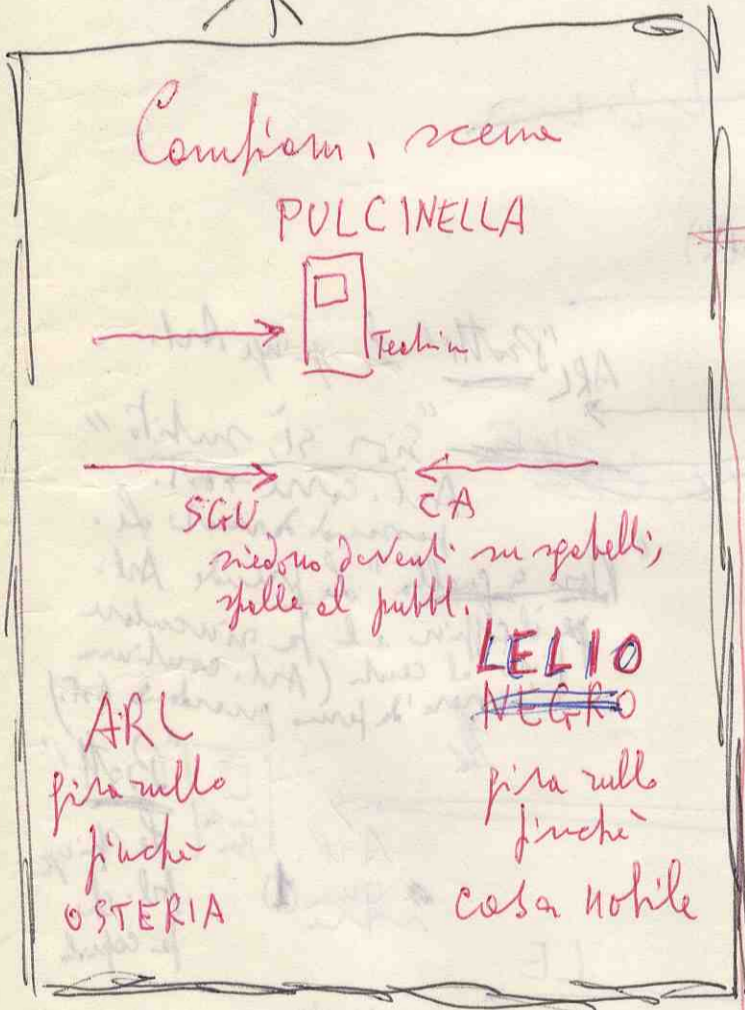 scena
PULCINELLA
SGV CA
siedono davanti su sgabelli,
spalle al pubbl.
LELIO
NEGRO
ARL
gira rullo
finchè
OSTERIA
gira rullo
finchè
casa nobile